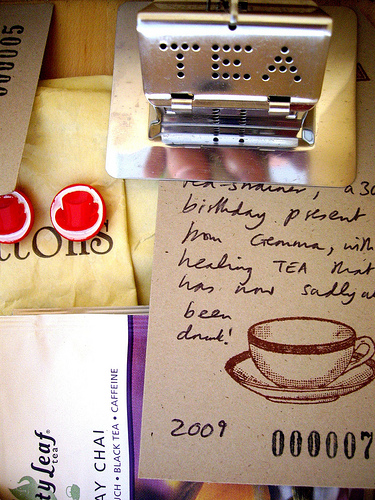 000005
TEA
ttons
tea-strainer, a 30
birthday present
from Gemma, with
healing TEA that
has now sadly
been
drunk!
2009
000007
ty leaf®
tea
AY CHAI
CH • BLACK TEA • CAFFEINE